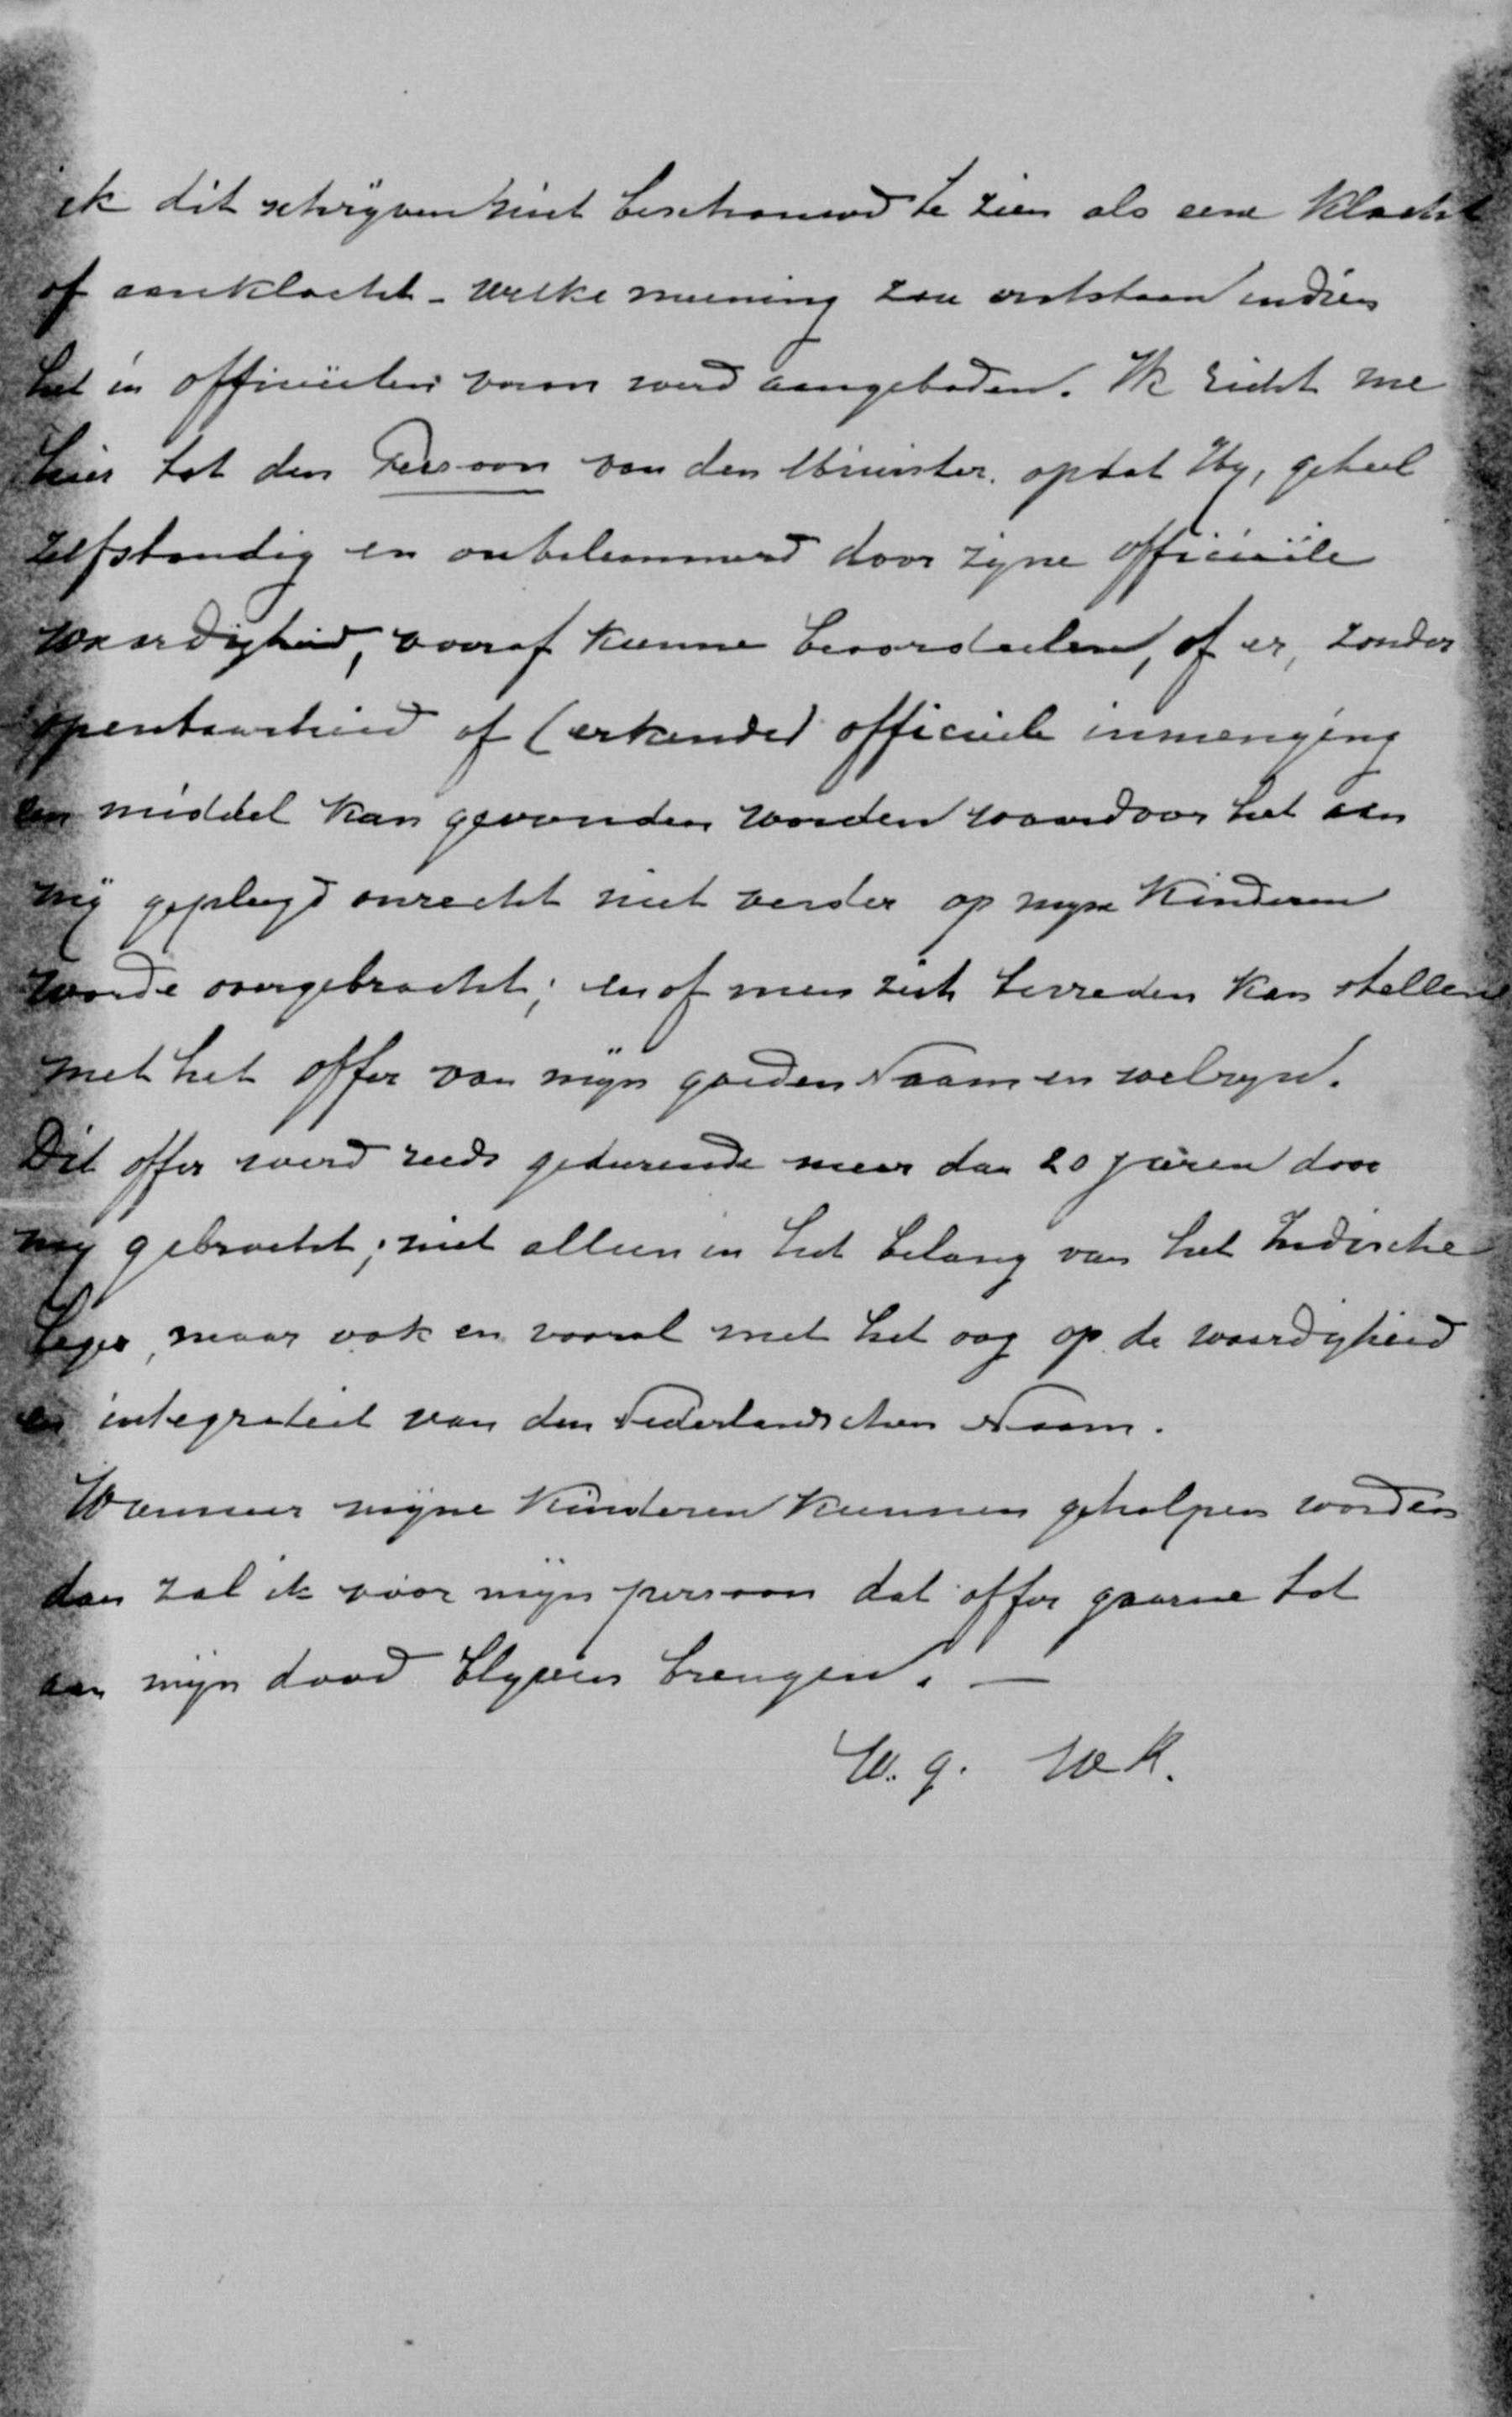 ik dit schrijven niet beschouwd te zien als eene klacht
of aanklacht - welke meening zou ontstaan indien
het in officieelen vorm werd aangeboden. Ik richt me
hier tot den Persoon van den Minister, opdat Hy, geheel
zelfstandig en onbelemmerd door zijne officieële
waardigheid, vooraf kunne beoordeelen, of er, zonder
openbaarheid of (erkende) officieele inmenging
een middel kan gevonden worden waardoor het aan
mij gepleegd onrecht niet verder op mijne Kinderen
worde overgebracht; en of men zich tevreden kan stellen
met het offer van mijn goeden Naam en welzijn.
Dit offer werd reeds gedurende meer dan 20 jaren door
mij gebracht; niet alleen in het belang van het Indische
Leger, maar ook en vooral met het oog op de waardigheid
en integriteit van den Nederlandschen Naam.
Wanneer mijne Kinderen kunnen geholpen worden
dan zal ik voor mijn persoon dat offer gaarne tot
aan mijn dood blijven brengen. —
W. g. WK.